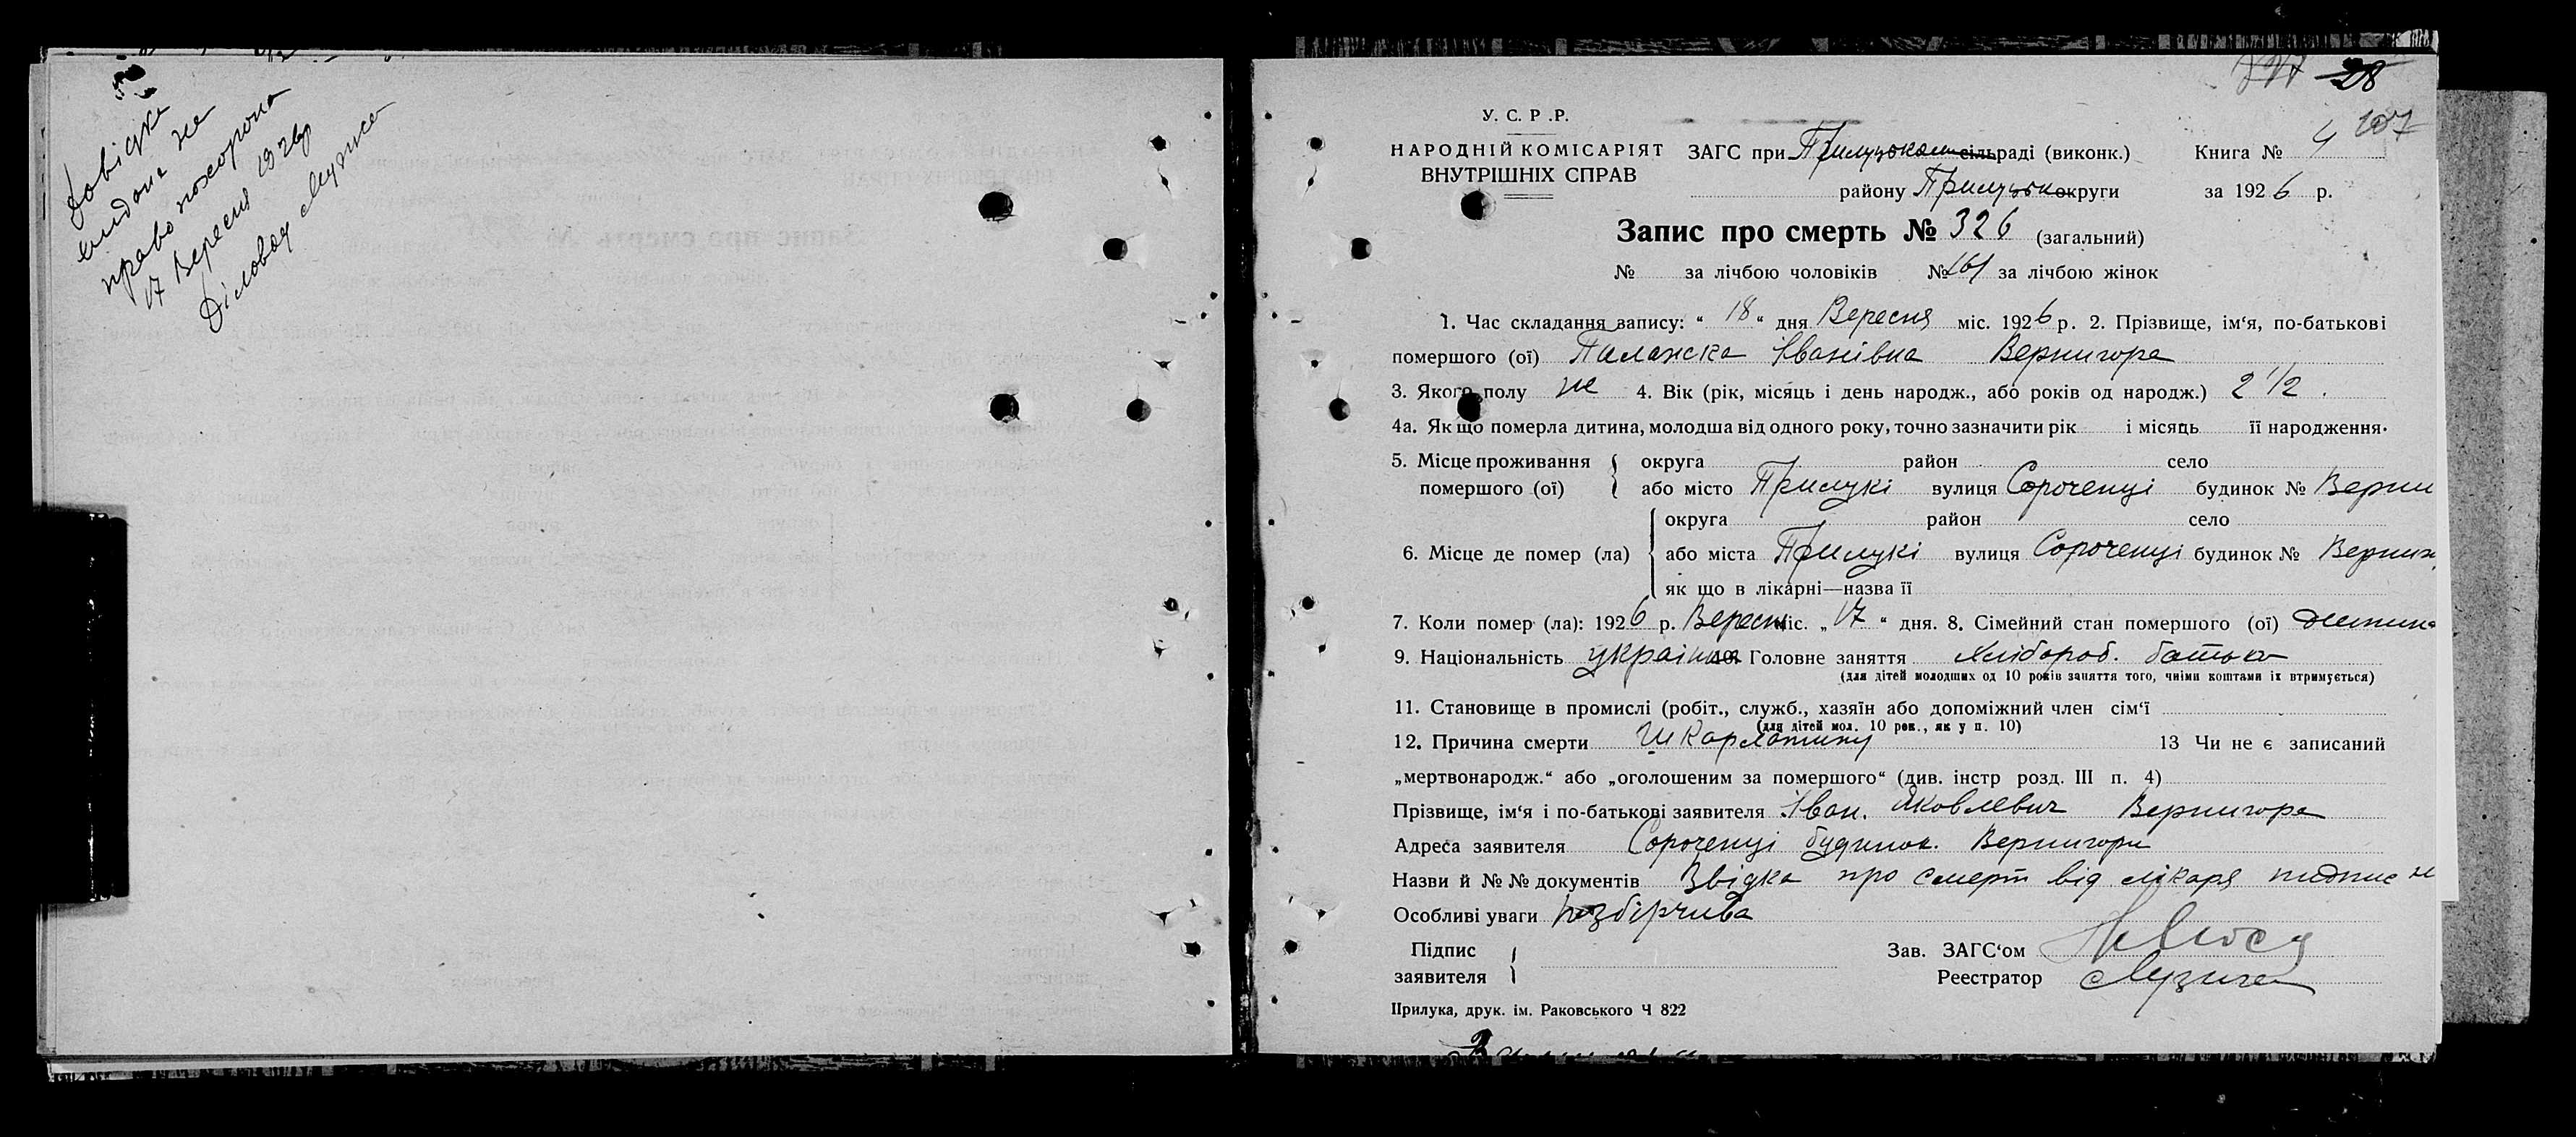 Довідка
видана на
право похорона
17 Вересня 1926 р
Діловод Музика
28
107
У. С. Р. Р.
НАРОДНІЙ КОМІСАРІЯТ
ВНУТРІШНІХ СПРАВ
ЗАГС при Прилуцьком сільраді (виконк.) Книга № 4
району Прилуцьк округи за 1926 р.
Запис про смерть № 326 (загальний)
№ за лічбою чоловіків № 161 за лічбою жінок
1. Час складання запису: “ 18 “ дня Вересня міс. 1926 р. 2. Прізвище, ім‘я, по-батькові
помершого (ої) Палажка Іванівна Вернигора
3. Якого полу же 4. Вік (рік, місяць і день народж., або років од народж.) 2 1/2 .
4а. Як що померла дитина, молодша від одного року, точно зазначити рік і місяць її народження.
5. Місце проживання помершого (ої) { округа район село
або місто Прилукі вулиця Сороченці будинок № Верни
6. Місце де помер (ла) { округа район село
або міста Прилукі вулиця Сороченці будинок № Верниг
як що в лікарні—назва її
7. Коли помер (ла): 1926 р. Вересн міс. „ 17 “ дня. 8. Сімейний стан помершого (ої) дитина
9. Національність україн 10. Головне заняття Хлібороб. батько
(для дітей молодших од 10 років заняття того, чиїми коштами їх втримується)
11. Становище в промислі (робіт., служб., хазяїн або допоміжний член сім‘ї
(для дітей мол. 10 рок., як у п. 10)
12. Причина смерти Шкарлатину 13 Чи не є записаний
„мертвонародж.“ або „оголошеним за помершого“ (див. інстр розд. III п. 4)
Прізвище, ім‘я і по-батькові заявителя Іван. Яковлевич Вернигора
Адреса заявителя Сороченці будинок. Вернигори
Назви й № № документів Звідка про смерт від лікаря пидпис н
Особливі уваги розбірчива
Підпис
заявителя
Зав. ЗАГС‘ом
Реестратор Музика
Прилука, друк. ім. Раковського Ч 822